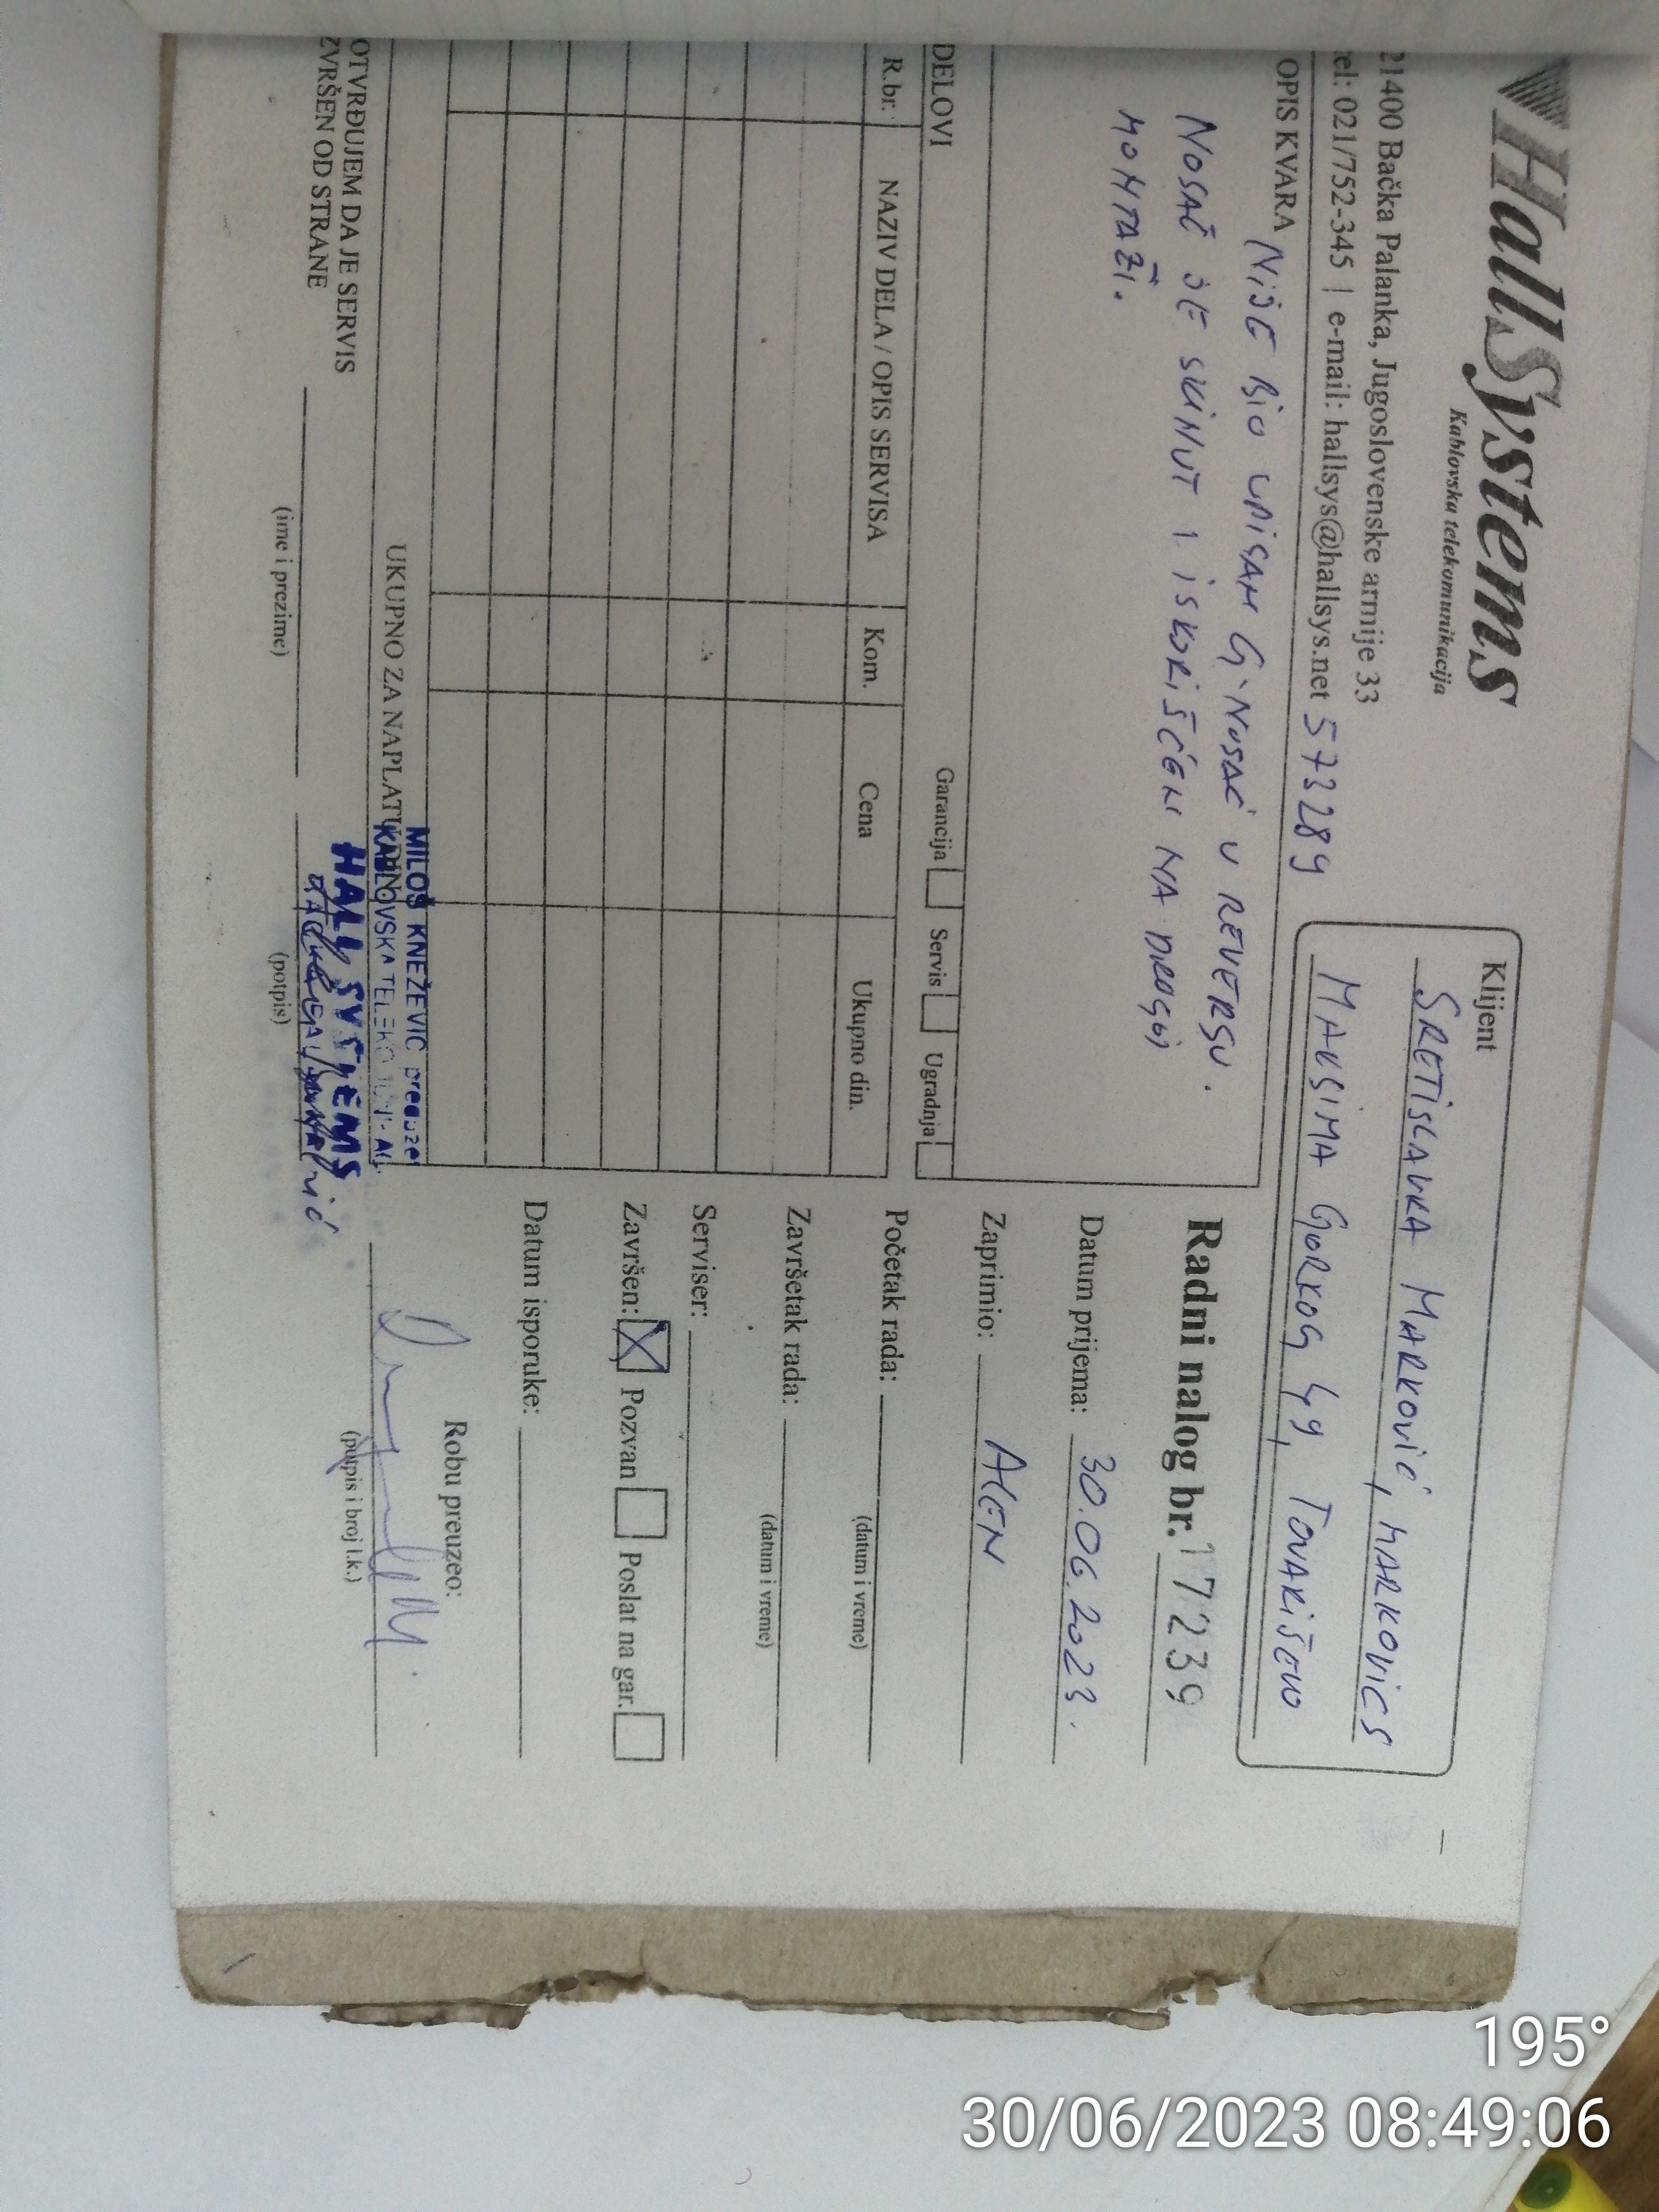 HallSystems
Kablovska telekomunikacija
21400 Bačka Palanka, Jugoslovenske armije 33
el: 021/752-345 | e-mail: hallsys@hallsys.net 573289
Klijent
SRETISLAVKA MARKOVIĆ, MARKOVICS
MAKSIMA GORKOG 49, TOVARIŠEVO
OPIS KVARA NIJE BIO UPISAN G-NOSAČ U REVERSU.
NOSAČ JE SKINUT I ISKORIŠĆEN NA DRUGOJ
MONTAŽI.
Radni nalog br. 17239
Datum prijema: 30.06.2023.
Zaprimio: ALEN
Početak rada:
(datum i vreme)
Završetak rada:
(datum i vreme)
Serviser:
Završen: Pozvan Poslat na gar.
Datum isporuke:
Robu preuzeo:
(potpis i broj l.k.)
DELOVI Garancija Servis Ugradnja
R.br. NAZIV DELA / OPIS SERVISA Kom. Cena Ukupno din.
UKUPNO ZA NAPLATU DIN
MILOŠ KNEŽEVIĆ preduzet
KABLOVSKA TELEKO
HALL SYSTEMS
OTVRĐUJEM DA JE SERVIS
ZVRŠEN OD STRANE
(ime i prezime) (potpis)
195°
30/06/2023 08:49:06